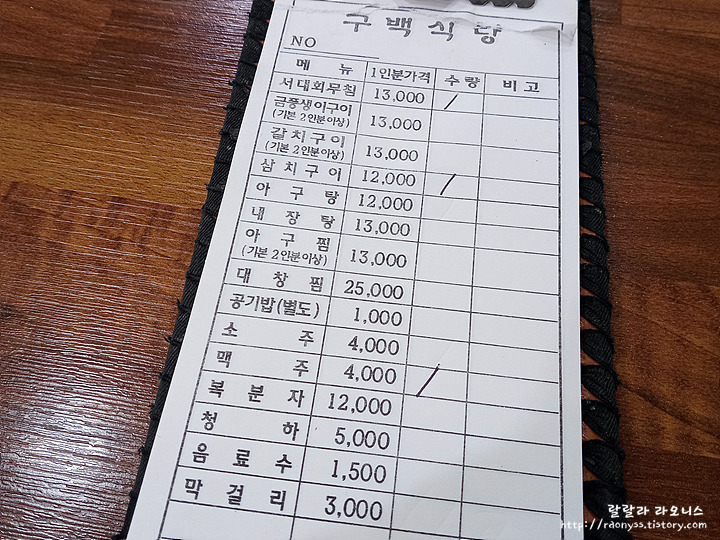 구백식당
NO
메 뉴 1인분가격 수량 비고
서대회무침 13,000 /
금풍생이구이 13,000
(기본 2인분이상)
갈치구이 13,000
(기본 2인분이상)
삼치구이 12,000 /
아구탕 12,000
내장탕 13,000
아구찜 13,000
(기본 2인분이상)
대창찜 25,000
공기밥(별도) 1,000
소주 4,000
맥주 4,000 /
복분자 12,000
청하 5,000
음료수 1,500
막걸리 3,000
랄랄라 라오니스
http://raonyss.tistory.com